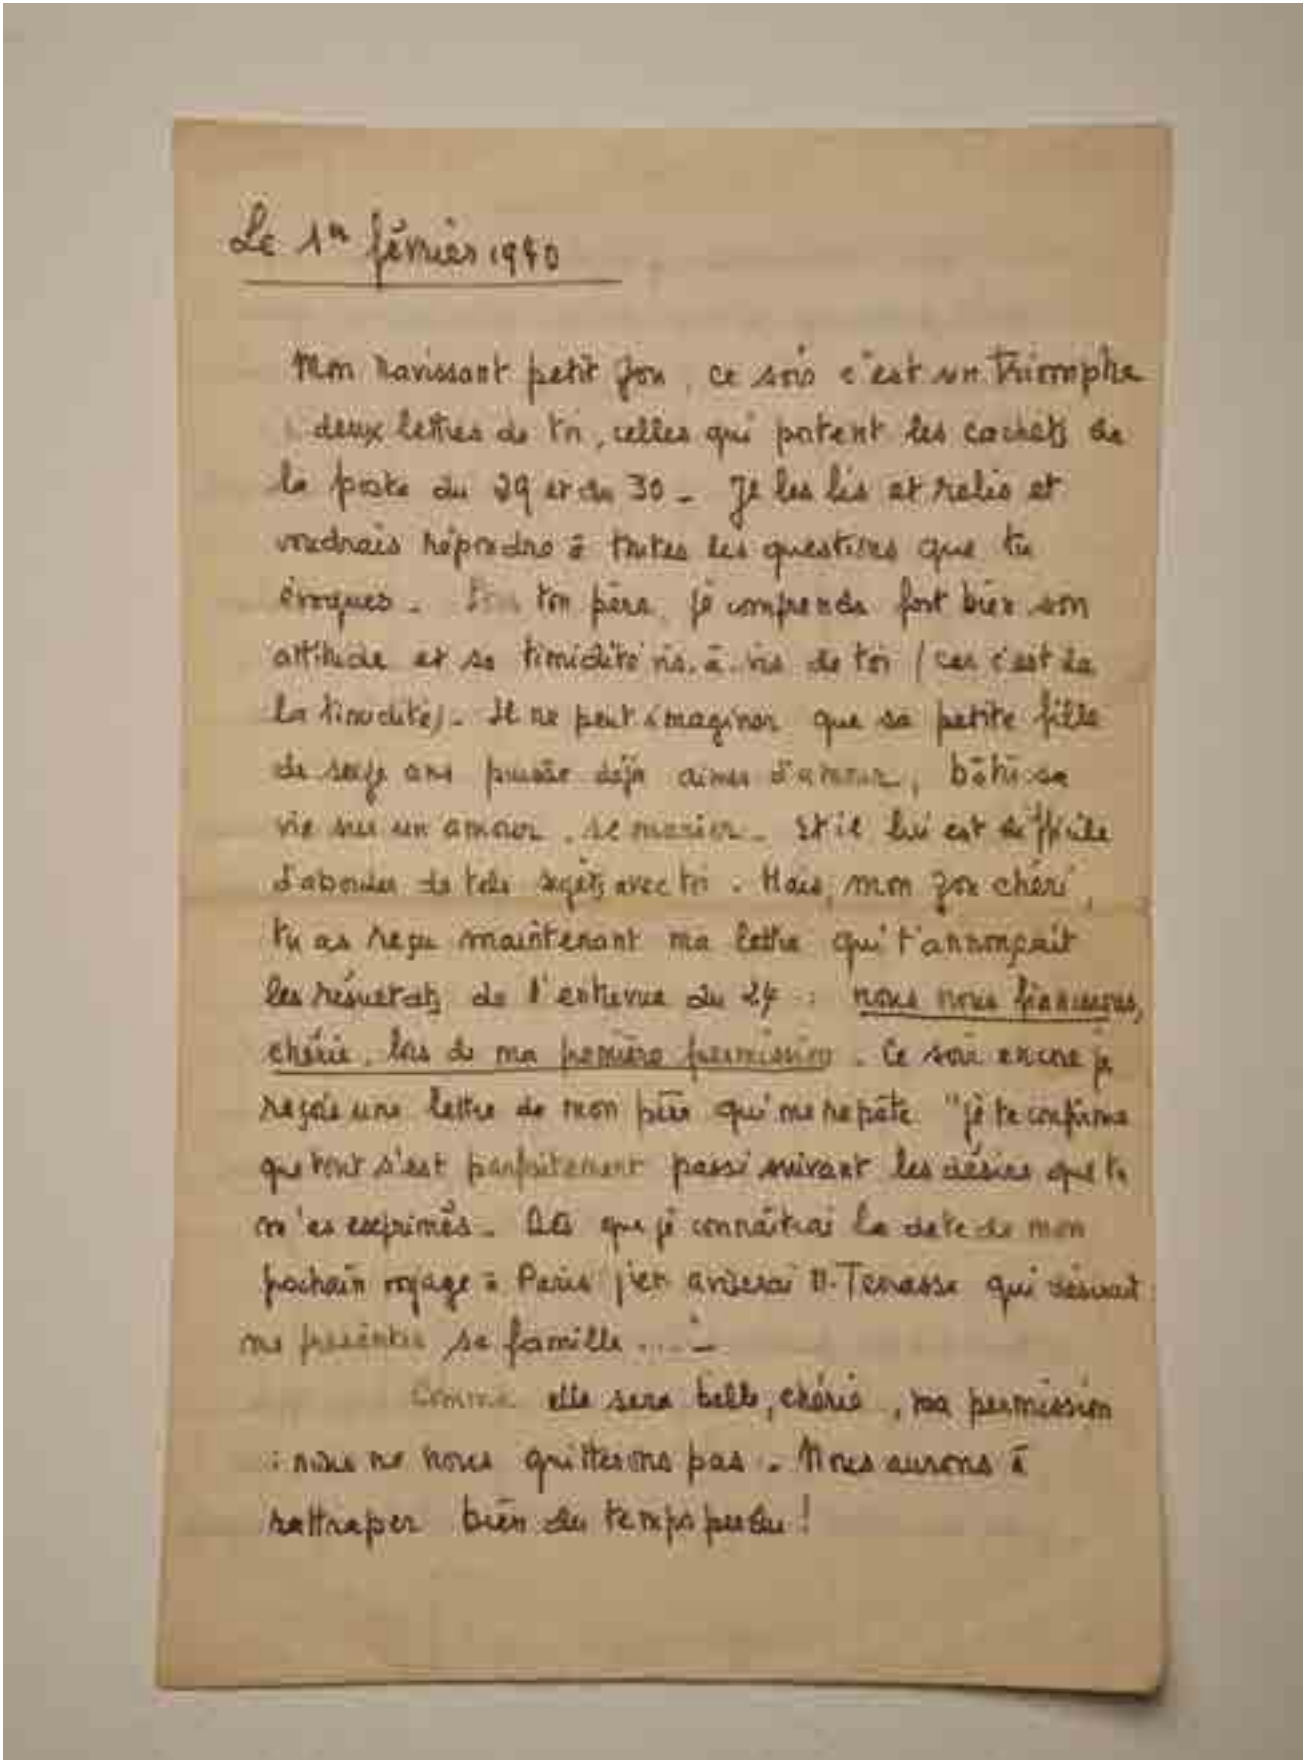 Le 1er février 1940
Mon ravissant petit Zou, ce soir c'est un triomphe
: deux lettres de toi, celles qui portent les cachets de
la poste du 29 et du 30 - Je les lis et relis et
voudrais répondre à toutes les questions que tu
évoques - ton père, je comprends fort bien son
attitude et sa timidité vis-à-vis de toi (car c'est de
la timidité) - Il ne peut imaginer que sa petite fille
de seize ans puisse déjà aimer d'amour, bâtir sa
vie sur un amour, se marier - Et il lui est difficile
d'aborder de tels sujets avec toi. Mais, mon Zou chéri,
tu as reçu maintenant ma lettre qui t'annonçait
les résultats de l'entrevue du 24 : nous nous fiancerons,
chérie, lors de ma première permission. Ce soir encore je
reçois une lettre de mon père qui me répète "je te confirme
que tout s'est parfaitement passé suivant les désirs que tu
m'as exprimés - Dès que je connaîtrai la date de mon
prochain voyage à Paris j'en aviserai M. Terrasse qui désirait
me présenter sa famille ...." -
Comme elle sera belle, chérie, ma permission
: nous ne nous quitterons pas - Nous aurons à
rattraper bien du temps perdu !